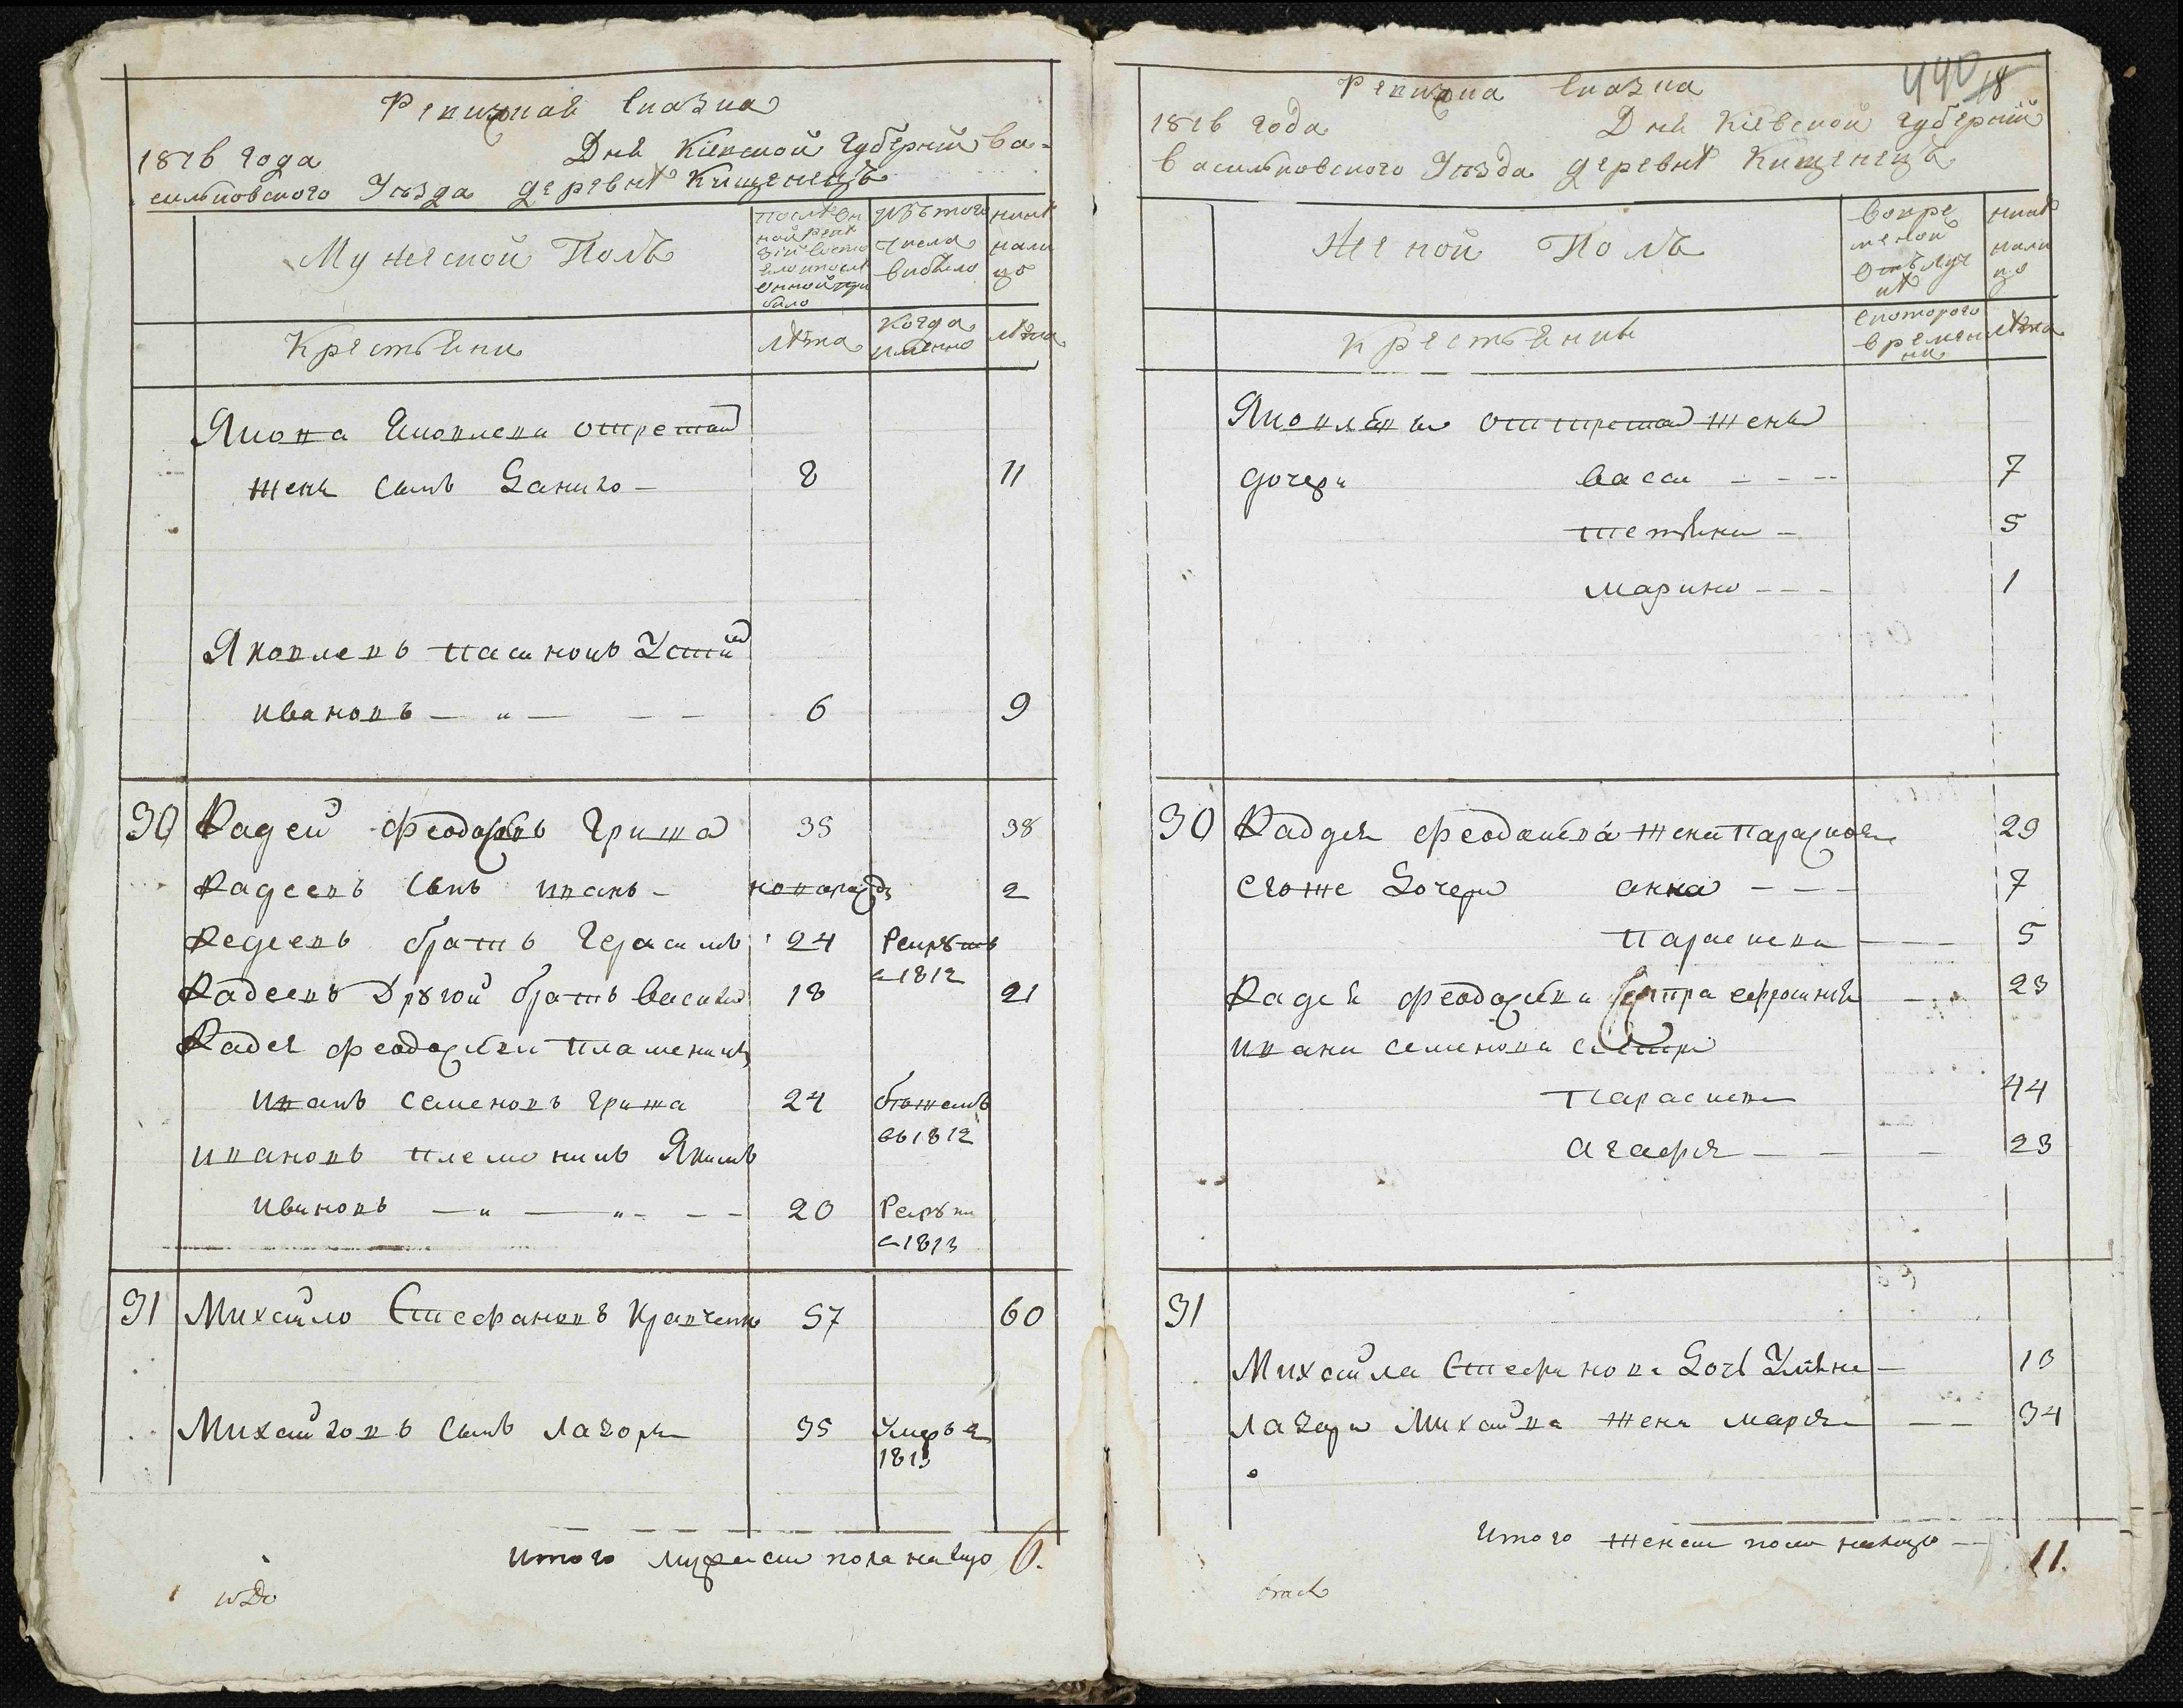 Ревизкая Сказка
1816 года Дня Кіевской Губерніи Ва-
сильковского Уезда деревне Кищенецъ
Мужеской Полъ
После оной ревизіи состояло и после оной прибыло
Изъ того числа выбыло
Ныне налицо
Крестьяни
лета
когда именно
лета
Якова Яковлева от третей
жени сынъ Данило - 8 11
Яковлевъ пасинокъ Устин
ивановъ - " - - - 6 9
30 Фадей Феодосіевъ Грижа 35 38
Фадеевъ сынъ иванъ - новорозд 2
Фадеевъ братъ Герасимъ 24 Рекрутъ
в 1812
Фадеевъ Другой братъ Василий 18 21
Фадея Феодосиева племеникъ
иванъ семеновъ грижа 24 бежалъ
въ 1812
ивановъ племеникъ Якимъ
ивановъ - " - " - - - 20 Рекрут
в 1813
31 Михайло Стефановъ Кравченко 57 60
Михайловъ сынъ лазорь 35 Умеръ в
1813
итого мужеска пола налицо 6.
440
18
Ревизка Сказка
1816 года Дня Кіевской Губерніи
Васильковского Уезда деревне Кищенецъ
Женской Полъ
Во временой отлучке
Ныне налицо
Крестьянки
с которого времени
лета
Яковлева от третей жены
дочери васса - - - 7
тетяна - 5
марина - - - 1
30 Фадея Феодосиева жена Параскова 29
Егоже Дочери анна - - - 7
Параскева - - - 5
Фадея Феодосиева сестра ефросиния - - 23
ивана семенова сестри
Параскева 44
агафия - - - 23
31
Михайла Стефанова Дочь Уляна - 13
лазора Михайлова жена мария - - 34
итого женска пола налицо - 11.